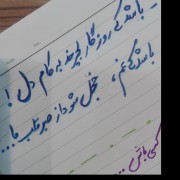 - باشد که روزگار بچرخد به کام دل !
باشد که غم ، خجل شود از صبر قلب ما ...